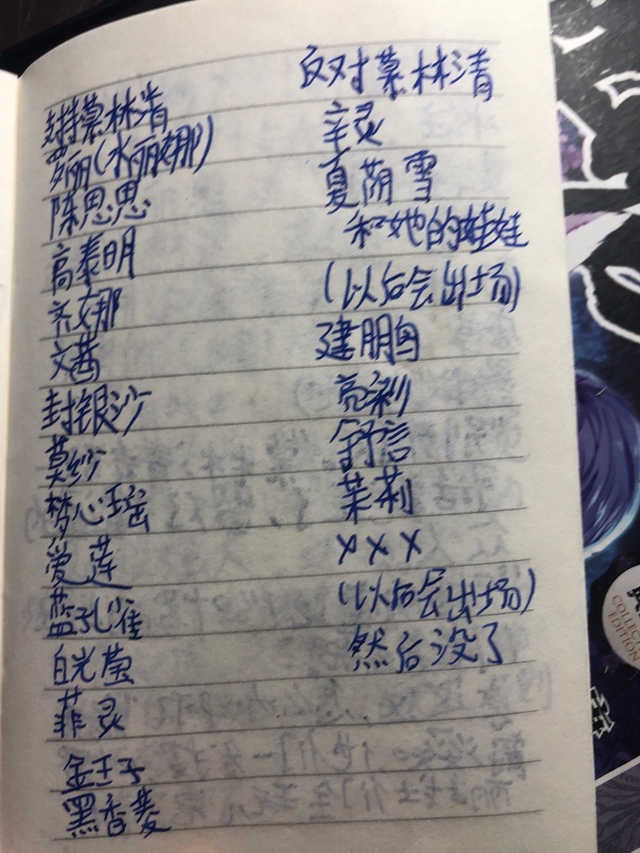 支持慕林清
罗丽(水丽娜)
陈思思
高泰明
齐娜
文茜
封银沙
莫纱
梦心瑶
爱莲
蓝孔雀
白光莹
菲灵
金王子
黑香菱
反对慕林清
辛灵
夏荫雪
和她的娃娃
(以后会出场)
建鹏
亮彩
舒言
茉莉
×××
(以后会出场)
然后没了
COLLECT
EDITION